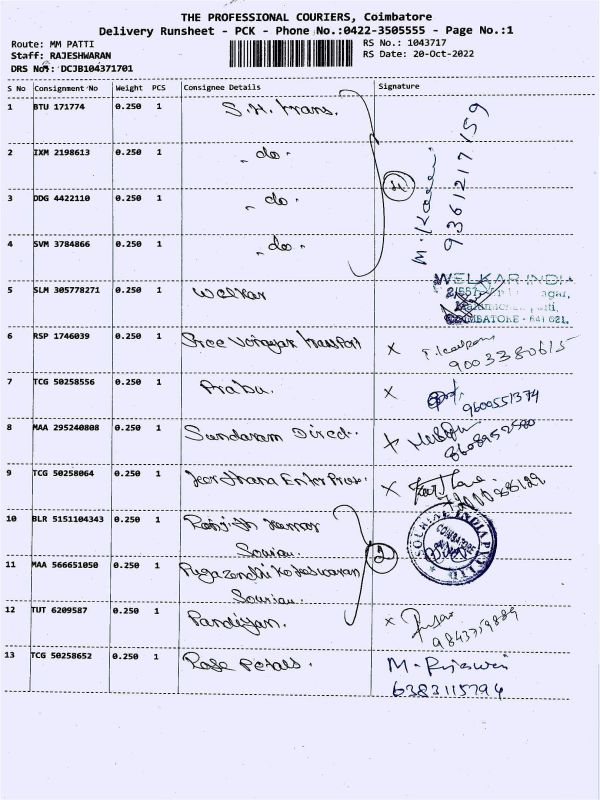 THE PROFESSIONAL COURIERS, Coimbatore
Delivery Runsheet - PCK - Phone No.:0422-3505555 - Page No.:1
Route: MM PATTI
RS No.: 1043717
Staff: RAJESHWARAN
RS Date: 20-Oct-2022
DRS No: DCJB104371701
S No Consignment No Weight PCS Consignee Details Signature
1 BTU 171774 0.250 1 S.H. trans.
2 IXM 2198613 0.250 1 - do -
3 DDG 4422110 0.250 1 - do -
4 SVM 3784866 0.250 1 - do -
4
9361217159
5 SLM 305778271 0.250 1 Welkar
WELKAR INDIA
COIMBATORE - 641 021.
6 RSP 1746039 0.250 1 Sree Vinayak transport X
9003380615
7 TCG 50258556 0.250 1 Prabu. X
9600551374
8 MAA 295240808 0.250 1 Sundaram Direct. X
8608952580
9 TCG 50258064 0.250 1 X
10 BLR 5151104343 0.250 1 Ranjith Kumar
Souriau.
2
SOURIAU INDIA PVT LTD
COIMBATORE
11 MAA 566651050 0.250 1 Pugazendhi Koteswaran
Souriau.
12 TUT 6209587 0.250 1 Pandiyan. X
9843759889
13 TCG 50258652 0.250 1 Rose Petals.
6383115794